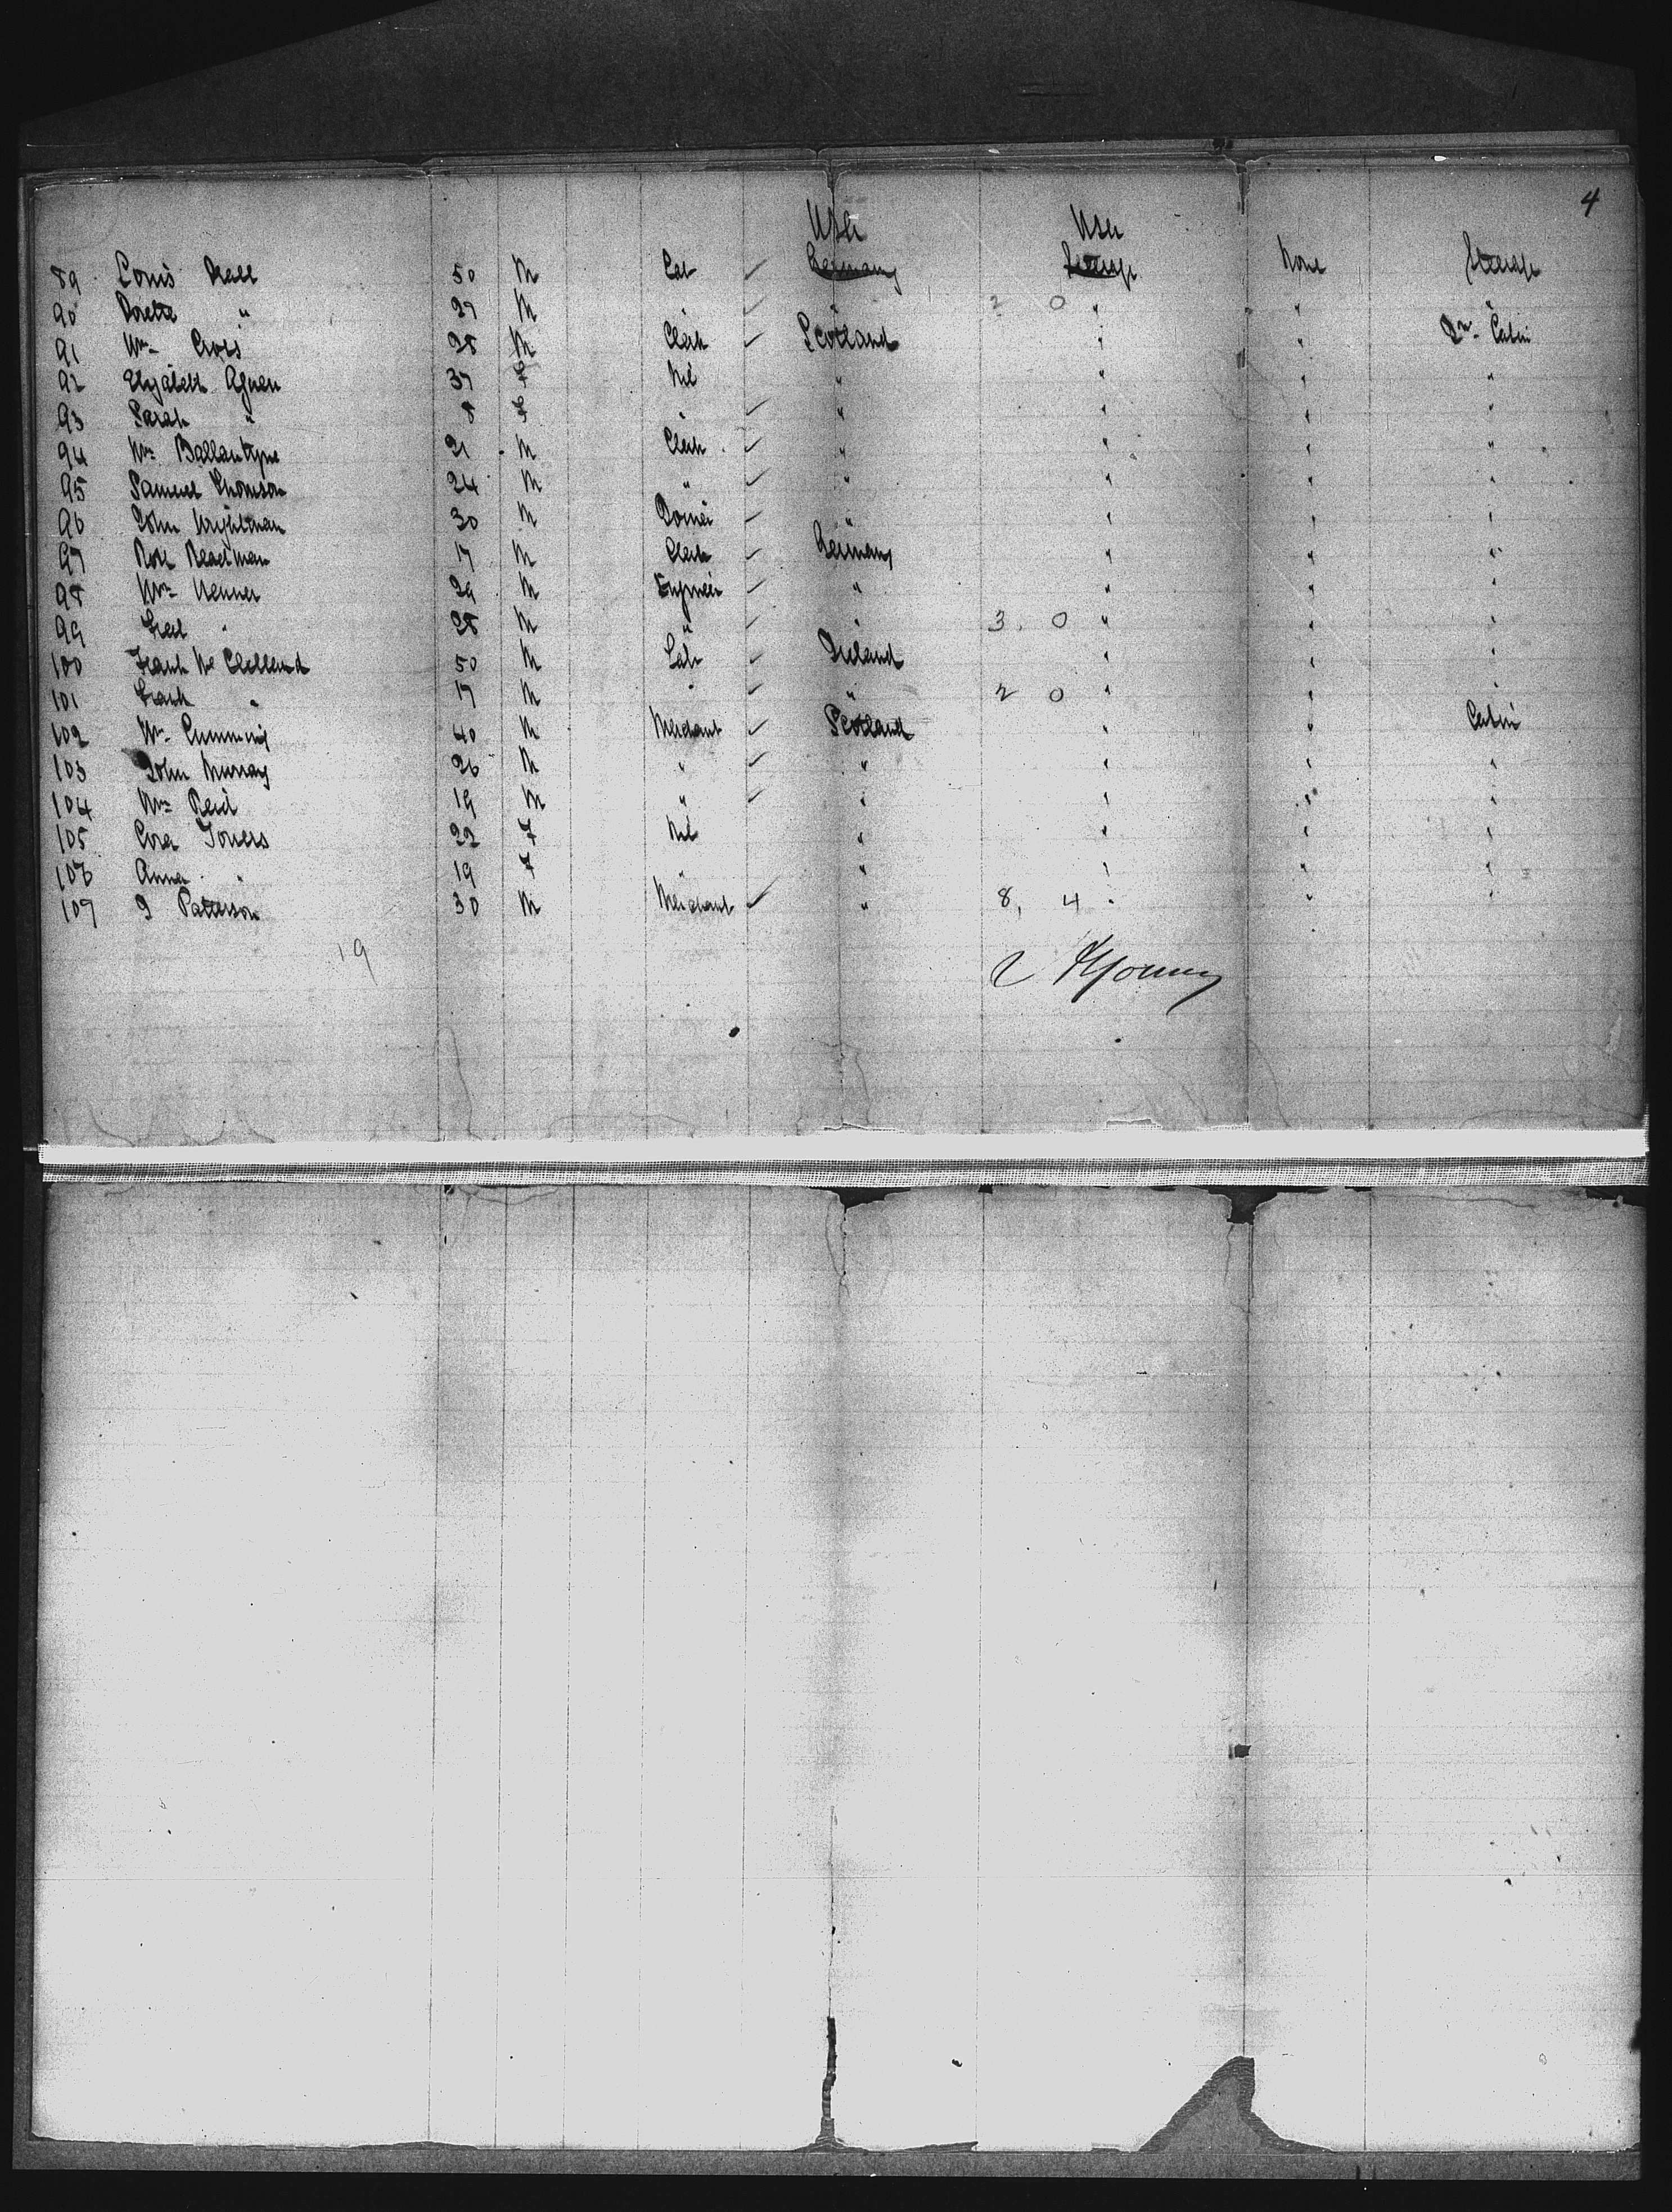 4
USA USA
89 Louis 50 M Lab Germany None Steerage
90 " 27 M " " 2 0 " " "
91 Wm Cross 28 M Clerk Scotland " " 2nd Cabin
92 Elizabeth Agnew 37 F Nil " " " "
93 Sarah " 8 F " " " " "
94 Wm Ballantyne 21 M Clerk " " " "
95 Samuel Thomson 24 M " " " " "
96 John Wrightman 30 M " " " "
97 17 M Clerk Germany " " "
98 Wm 29 M Engineer " " " "
99 Fred " 28 M " " 3. 0 " " "
100 Frank Mc Clelland 50 M Lab Ireland " " "
101 Frank " 17 M " " 2 0 " " "
102 Wm Cumming 40 M Merchant Scotland " " Cabin
103 John Murray 26 M " " " " "
104 Wm Reid 19 M " " " " "
105 Cora Towers 22 F Nil " " " "
106 Anna " 19 F " " " " "
107 J Patterson 30 M Merchant " 8, 4 " " "
19
Young